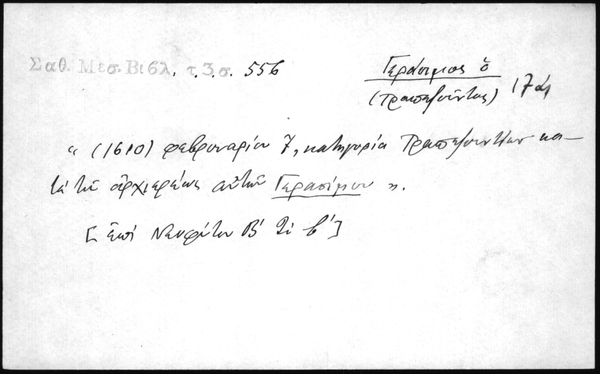 Σαθ. Μεσ. Βιβλ. τ. 3. σ. 556
Γεράσιμος ὁ
(Τραπεζοῦντος) 17ος
« (1610) φεβρουαρίου 7, κατηγορία Τραπεζουντίων κα-
τὰ τοῦ ἀρχιερέως αὐτῶν Γερασίμου ».
[ἐπὶ Νεοφύτου Β´ β´]